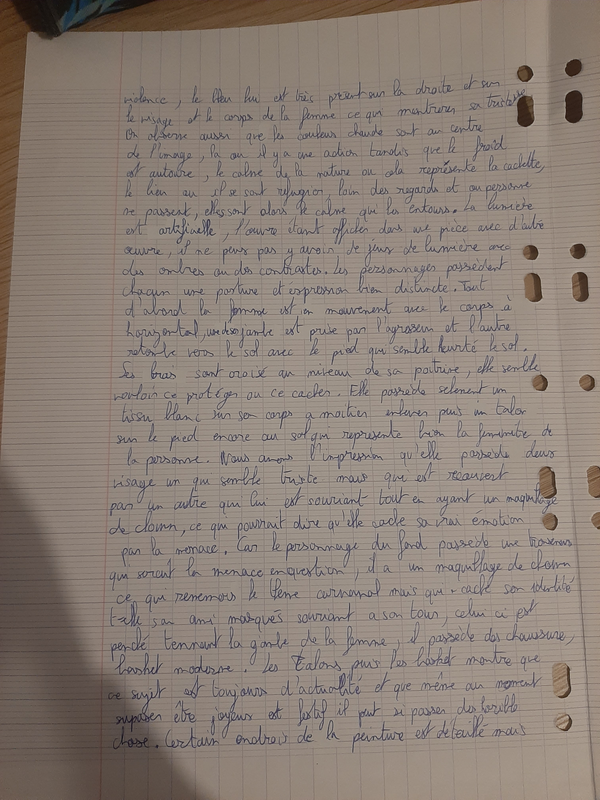 violence, le bleu lui est très présent sur la droite et sur
le visage et le corps de la femme ce qui montrerer sa tristesse
On observe aussi que les couleurs chaude sont au centre
de l'image, là ou il y a une action tandis que le froid
est autoure, le calme de la nature ou cela représente la cachette,
le lieu ou il se sont réfugier, loin des regards et ou personne
ne passent, elles sont alors le calme qui les entours. La lumière
est artificielle, l'œuvre étant afficher dans une pièce avec d'autre
œuvre, il ne peux pas y avoir de jeux de lumière avec
des ombres ou des contrastes. Les personnages possèdent
chaqun une posture et expression bien distincte. Tout
d'abord la femme est en mouvement avec le corps à
horizontal, jambe est prise par l'agresseur et l'autre
retombe vers le sol avec le pied qui semble heurté le sol.
Ses bras sont croisé au niveau de sa poitrine, elle semble
vouloir ce protéger ou ce cacher. Elle possède selement un
tissu blanc sur son corps a moitier enlever puis un talon
sur le pied encore au sol qui représente bien la féminité de
la personne. Nous avons l'impression qu'elle possède deux
visage un qui semble triste mais qui est recouvert
par un autre qui lui est souriant tout en ayant un maquillage
de clown, ce qui pourrait dire qu'elle cache sa vrai émotion
par la menace. Car le personnage du fond possède une
qui serait la menace en question, il a un maquillage de clown
ce qui rememore le thème carnaval mais qui cache son identité
son ami marqués souriant a son tour, celui ci est
penché tennent la jambe de la femme, il possède des chaussure,
basket moderne. Les Talons puis les basket montre que
ce sujet est toujours d'actualité et que même au moment
supposer être joyeux est festif il peut si passer des horrible
chose. Certain endrois de la peinture est détaillé mais